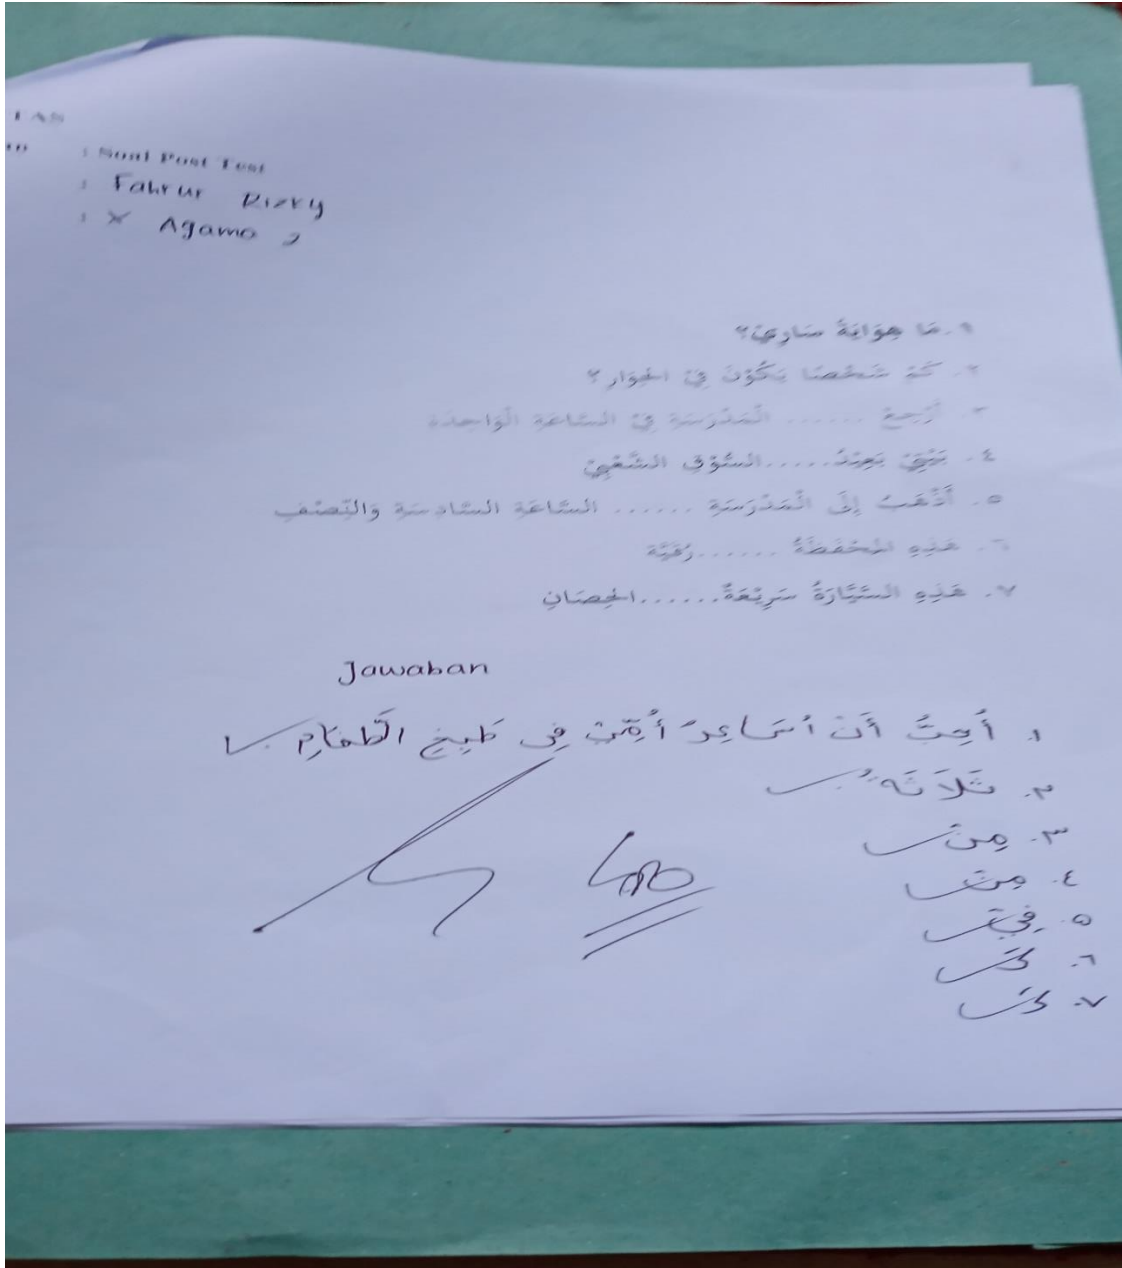 : Soal Post Test
: Fahrur Rizky
: X Agama 2
١. مَا هِوَايَةُ سَارِيْ؟
٢. كَمْ شَخْصًا يَكُوْنَ فِيْ الحِوَارِ؟
٣. أَرْجِعُ ...... الْمَدْرَسَةِ فِيْ السَّاعَةِ الْوَاحِدَة
٤. بَيْتِيْ بَعِيْدٌ......السُّوْقِ الشَّعْبِيْ
٥. أَذْهَبُ إِلَى الْمَدْرَسَةِ ...... السَّاعَةِ السَّادِسَةِ وَالنِّصْفِ
٦. هَذِهِ الْمِحْفَظَةُ ......رُقَيَّة
٧. هَذِهِ السَّيَّارَةُ سَرِيْعَةٌ......الحِصَانِ
Jawaban
١. أُحِبُّ أَنْ أُسَاعِدَ أُمِّيْ فِي طَبِخِ الطَّعَامِ
٢. ثَلَاثَةٌ
٣. مِنْ
٤. مِنْ
٥. فِيْ
٦. كَ
٧. كَ